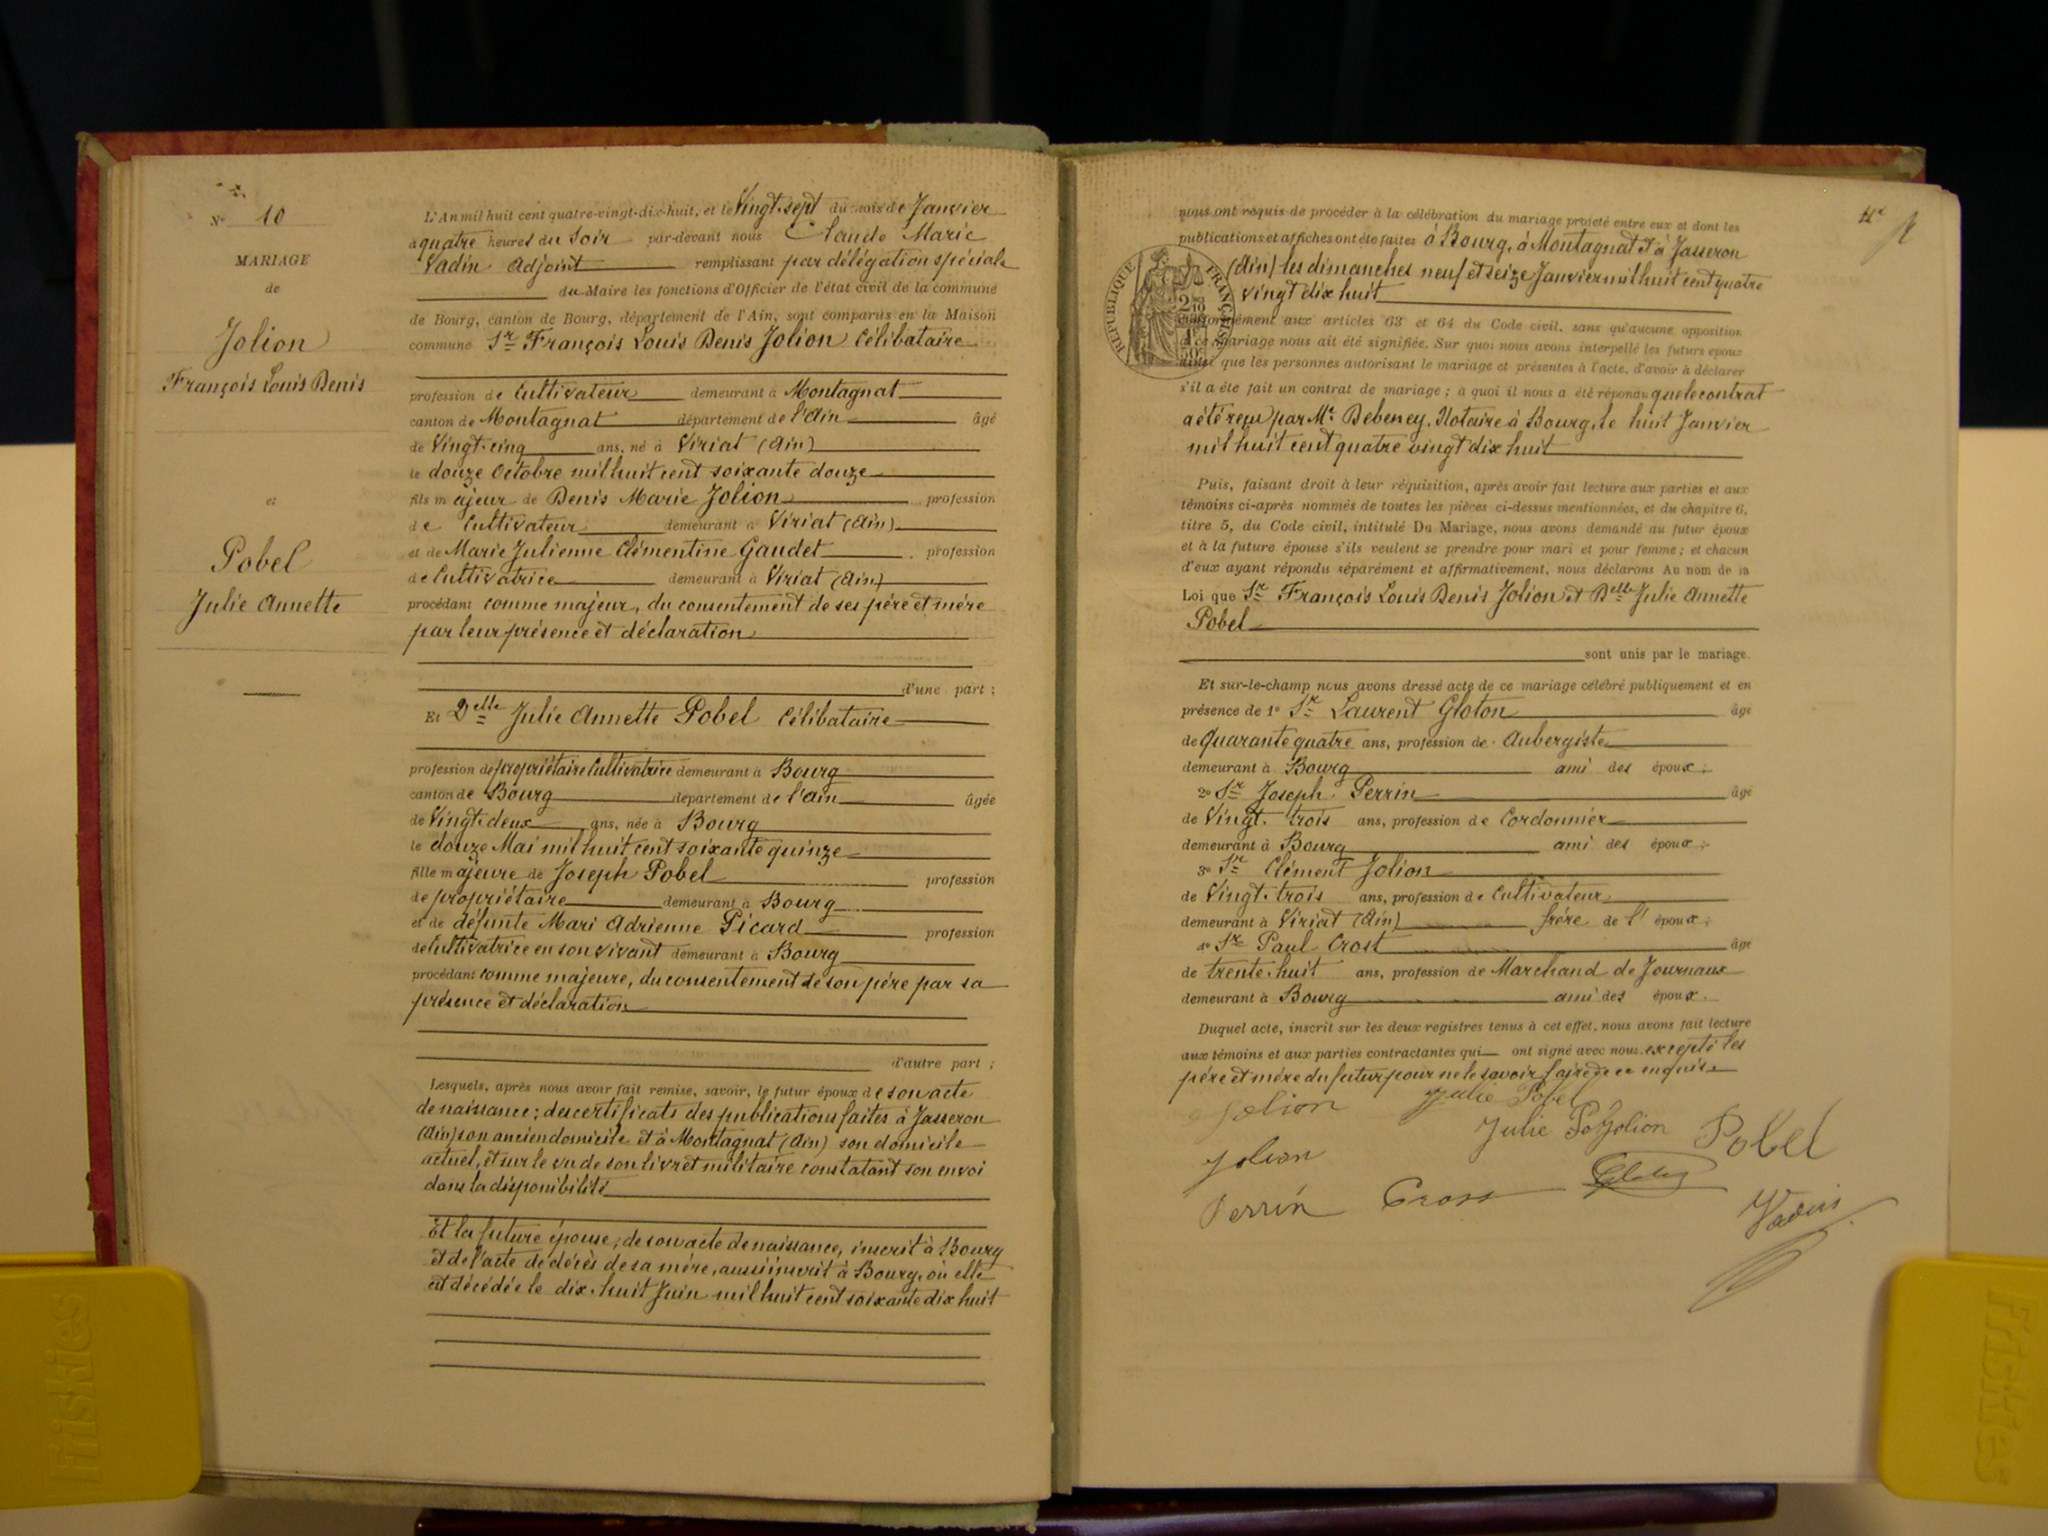 N° 10
MARIAGE
de
Jolion
François Louis Denis
et
Pobel
Julie Annette
L'An mil huit cent quatre-vingt-dix-huit, et le Vingt-sept du mois de Janvier
à quatre heures du Soir par-devant nous Claude Marie
Vadin Adjoint remplissant par délégation spéciale
du Maire les fonctions d'Officier de l'état civil de la commune
de Bourg, canton de Bourg, département de l'Ain, sont comparus en la Maison
commune Sr François Louis Denis Jolion Célibataire
profession de Cultivateur demeurant à Montagnat
canton de Montagnat département de l'Ain âgé
de Vingt-cinq ans, né à Viriat (Ain)
le douze Octobre mil huit cent soixante douze
fils majeur de Denis Marie Jolion profession
de Cultivateur demeurant à Viriat (Ain)
et de Marie Julienne Clémentine Gaudet profession
de Cultivatrice demeurant à Viriat (Ain)
procédant comme majeur, du consentement de ses père et mère
par leur présence et déclaration
d'une part ;
Et Delle Julie Annette Pobel Célibataire
profession de propriétaire Cultivatrice demeurant à Bourg
canton de Bourg département de l'Ain âgée
de Vingt-deux ans, née à Bourg
le douze Mai mil huit cent soixante quinze
fille majeure de Joseph Pobel profession
de propriétaire demeurant à Bourg
et de défunte Mari Adrienne Picard profession
de Cultivatrice en son vivant demeurant à Bourg
procédant comme majeure, du consentement de son père par sa
présence et déclaration
d'autre part ;
Lesquels, après nous avoir fait remise, savoir, le futur époux de son acte
de naissance ; des certificats des publications faites à Jasseron
(Ain) son ancien domicile et à Montagnat (Ain) son domicile
actuel, et sur le vu de son livret militaire constatant son envoi
dans la disponibilité
Et la future épouse, de son acte de naissance, inscrit à Bourg
et de l'acte de décès de sa mère, aussi inscrit à Bourg, où elle
est décédée le dix-huit Juin mil huit cent soixante dix huit
nous ont requis de procéder à la célébration du mariage projeté entre eux et dont les
publications et affiches ont été faites à Bourg, à Montagnat & à Jasseron
(Ain) les dimanches neuf et seize Janvier mil huit cent quatre
vingt dix huit
RÉPUBLIQUE FRANÇAISE
conformément aux articles 63 et 64 du Code civil, sans qu'aucune opposition
à ce mariage nous ait été signifiée. Sur quoi nous avons interpellé les futurs époux
ainsi que les personnes autorisant le mariage et présentes à l'acte, d'avoir à déclarer
s'il a été fait un contrat de mariage ; à quoi il nous a été répondu que le contrat
a été reçu par Me Debeney, Notaire à Bourg, le huit Janvier
mil huit cent quatre vingt dix huit
Puis, faisant droit à leur réquisition, après avoir fait lecture aux parties et aux
témoins ci-après nommés de toutes les pièces ci-dessus mentionnées, et du chapitre 6,
titre 5, du Code civil, intitulé Du Mariage, nous avons demandé au futur époux
et à la future épouse s'ils veulent se prendre pour mari et pour femme ; et chacun
d'eux ayant répondu séparément et affirmativement, nous déclarons Au nom de la
Loi que Sr François Louis Denis Jolion et Delle Julie Annette
Pobel
sont unis par le mariage.
Et sur-le-champ nous avons dressé acte de ce mariage célébré publiquement et en
présence de 1° Sr Laurent Gloton âgé
de Quarante quatre ans, profession de Aubergiste
demeurant à Bourg ami des époux ;
2° Sr Joseph Perrin âgé
de Vingt-trois ans, profession de Cordonnier
demeurant à Bourg ami des époux ;
3° Sr Clément Jolion
de Vingt-trois ans, profession de Cultivateur
demeurant à Viriat (Ain) frère de l'époux ;
4° Sr Paul Crost âgé
de trente-huit ans, profession de Marchand de Journaux
demeurant à Bourg ami des époux.
Duquel acte, inscrit sur les deux registres tenus à cet effet, nous avons fait lecture
aux témoins et aux parties contractantes qui ont signé avec nous excepté les
père et mère du futur pour ne le savoir faire de ce enquis
Jolion
Julie Pobel
Jolion
Julie
Jolion
Pobel
Perrin
Vadin
Friskies
Friskies